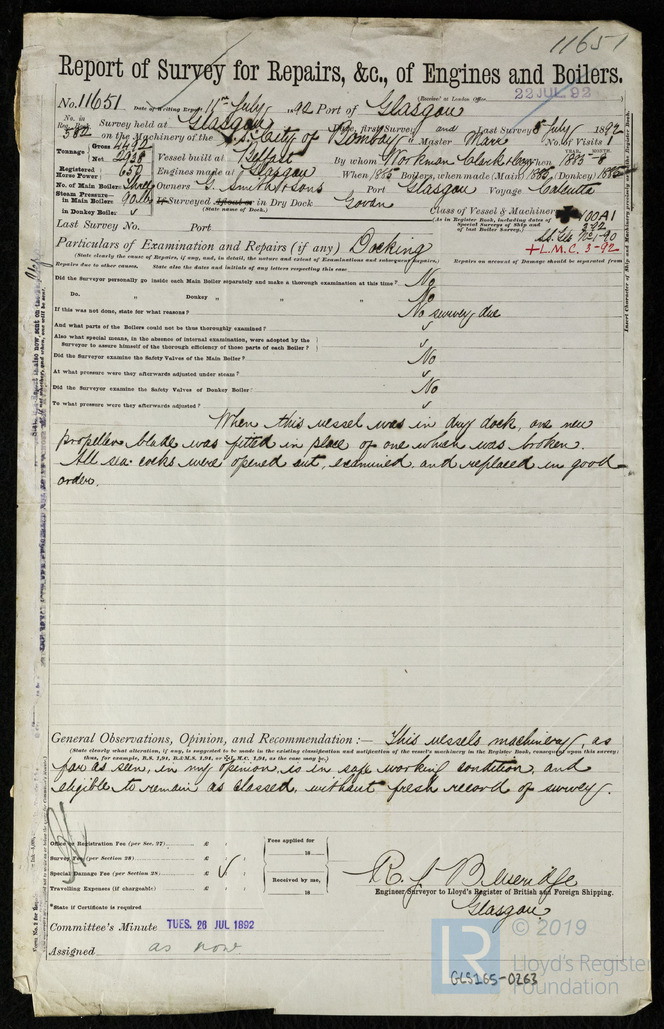 11651
Report of Survey for Repairs, &c., of Engines and Boilers.
(Received at London Office,
22 JUL 92
No. 11651 Date of Writing Report 15th July 1892 Port of Glasgow
No. in Reg. Book. 582 Survey held at Glasgow Date, first Survey and Last Survey 8 July 1892
on the Machinery of the S.S. City of Bombay Master Marr No. of Visits 1
Tonnage Gross 4492 Net 2938
Vessel built at Belfast By whom Workman Clark & Coy When YEAR. MONTH. 1885-8
Registered Horse Power 650 Engines made at Glasgow When 1885 Boilers, when made (Main) 1885 (Donkey) 1885
No. of Main Boilers Three Owners G. Smith & Sons Port Glasgow Voyage Calcutta
Steam Pressure in Main Boilers 90 lbs If Surveyed Afloat or in Dry Dock Govan
(State name of Dock.)
in Donkey Boiler ✓
Class of Vessel & Machinery 100A1
(As in Register Book, including dates of Special Surveys of Ship and of last Boiler Survey.)
3-92
+L.M.C. 3-92
Last Survey No. Port
Particulars of Examination and Repairs (if any) Docking
(State clearly the Cause of Repairs, if any, and, in detail, the nature and extent of Examinations and subsequent Repairs.) Repairs on account of Damage should be separated from
Repairs due to other causes. State also the dates and initials of any letters respecting this case
Did the Surveyor personally go inside each Main Boiler separately and make a thorough examination at this time? No
Do. Donkey „ „ „ No
If this was not done, state for what reasons? No survey due
And what parts of the Boilers could not be thus thoroughly examined? ✓
Also what special means, in the absence of internal examination, were adopted by the
Surveyor to assure himself of the thorough efficiency of those parts of each Boiler? ✓
Did the Surveyor examine the Safety Valves of the Main Boiler? No
At what pressure were they afterwards adjusted under steam? ✓
Did the Surveyor examine the Safety Valves of Donkey Boiler? No
To what pressure were they afterwards adjusted? ✓
When this vessel was in dry dock, one new
propeller blade was fitted in place of one which was broken.
All sea-cocks were opened out, examined and replaced in good
order.
General Observations, Opinion, and Recommendation:— This vessels machinery, as
(State clearly what alteration, if any, is suggested to be made in the existing classification and notification of the vessel's machinery in the Register Book, consequent upon this survey;
thus, for example, B.S. 1,91, B.&M.S. 1,91, or L.M.C. 1,91, as the case may be.)
far as seen, in my opinion, is in safe working condition, and
eligible to remain as classed, without fresh record of survey.
Office or Registration Fee (per Sec. 27) £ : :
Survey Fee (per Section 28) £ : :
Special Damage Fee (per Section 28) £ ✓ :
Travelling Expenses (if chargeable) £ : :
Fees applied for
18
Received by me,
18
*State if Certificate is required
R. J. Beveridge
Engineer Surveyor to Lloyd's Register of British and Foreign Shipping.
Glasgow
Committee's Minute TUES. 26 JUL 1892
Assigned as now
LR © 2019
Lloyd's Register
Foundation
GLS165-0263